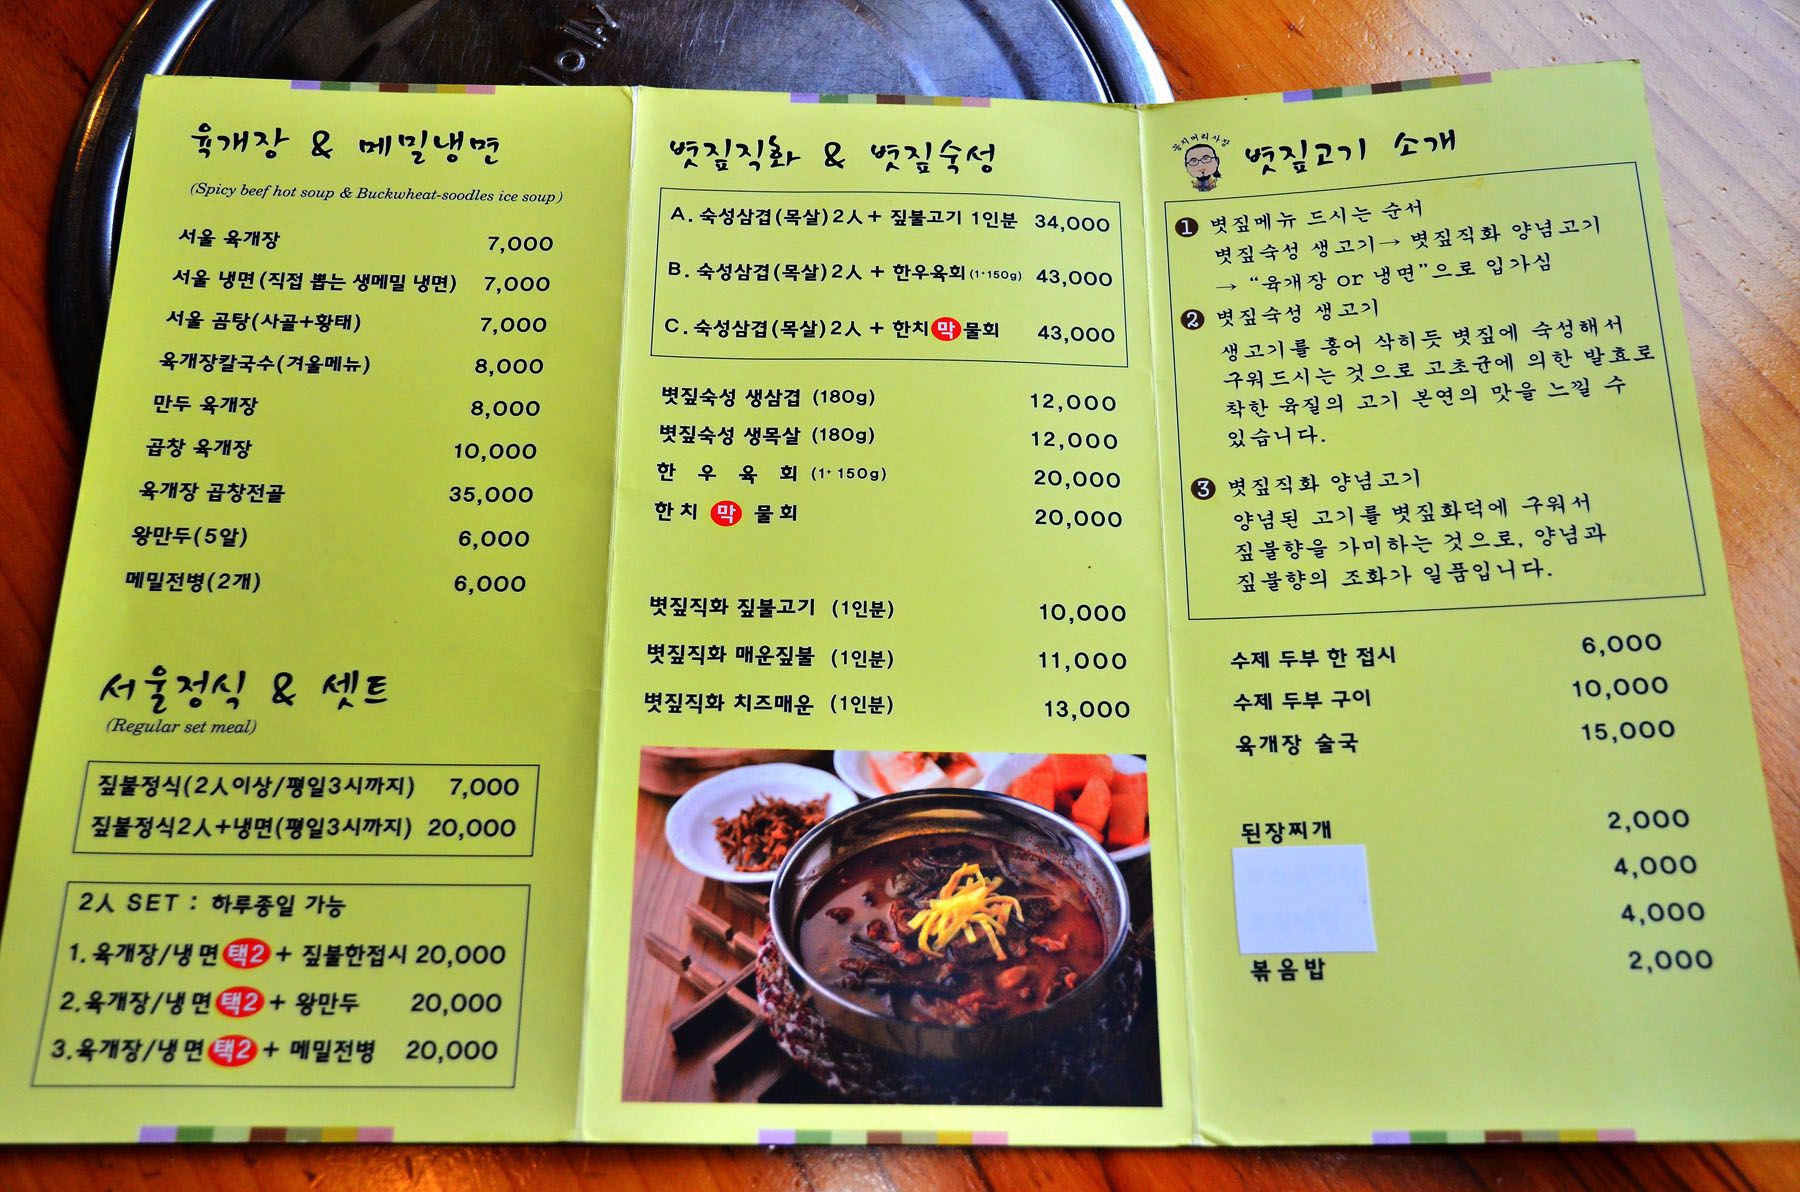 육개장 & 메밀냉면
(Spicy beef hot soup & Buckwheat-soodles ice soup)
서울 육개장 7,000
서울 냉면(직접 뽑는 생메밀 냉면) 7,000
서울 곰탕(사골+황태) 7,000
육개장칼국수(겨울메뉴) 8,000
만두 육개장 8,000
곱창 육개장 10,000
육개장 곱창전골 35,000
왕만두(5알) 6,000
메밀전병(2개) 6,000
서울정식 & 셋트
(Regular set meal)
짚불정식(2人이상/평일3시까지) 7,000
짚불정식2人+냉면(평일3시까지) 20,000
2人 SET : 하루종일 가능
1.육개장/냉면 택2 + 짚불한접시 20,000
2.육개장/냉면 택2 + 왕만두 20,000
3.육개장/냉면 택2 + 메밀전병 20,000
볏짚직화 & 볏짚숙성
A. 숙성삼겹(목살)2人 + 짚불고기 1인분 34,000
B. 숙성삼겹(목살)2人 + 한우육회(1+150g) 43,000
C. 숙성삼겹(목살)2人 + 한치 막 물회 43,000
볏짚숙성 생삼겹 (180g) 12,000
볏짚숙성 생목살 (180g) 12,000
한 우 육 회 (1+ 150g) 20,000
한치 막 물회 20,000
볏짚직화 짚불고기 (1인분) 10,000
볏짚직화 매운짚불 (1인분) 11,000
볏짚직화 치즈매운 (1인분) 13,000
볏짚고기 소개
1 볏짚메뉴 드시는 순서
볏짚숙성 생고기→ 볏짚직화 양념고기
→ "육개장 or 냉면"으로 입가심
2 볏짚숙성 생고기
생고기를 홍어 삭히듯 볏짚에 숙성해서
구워드시는 것으로 고초균에 의한 발효로
착한 육질의 고기 본연의 맛을 느낄 수
있습니다.
3 볏짚직화 양념고기
양념된 고기를 볏짚화덕에 구워서
짚불향을 가미하는 것으로, 양념과
짚불향의 조화가 일품입니다.
수제 두부 한 접시 6,000
수제 두부 구이 10,000
육개장 술국 15,000
된장찌개 2,000
4,000
4,000
볶음밥 2,000